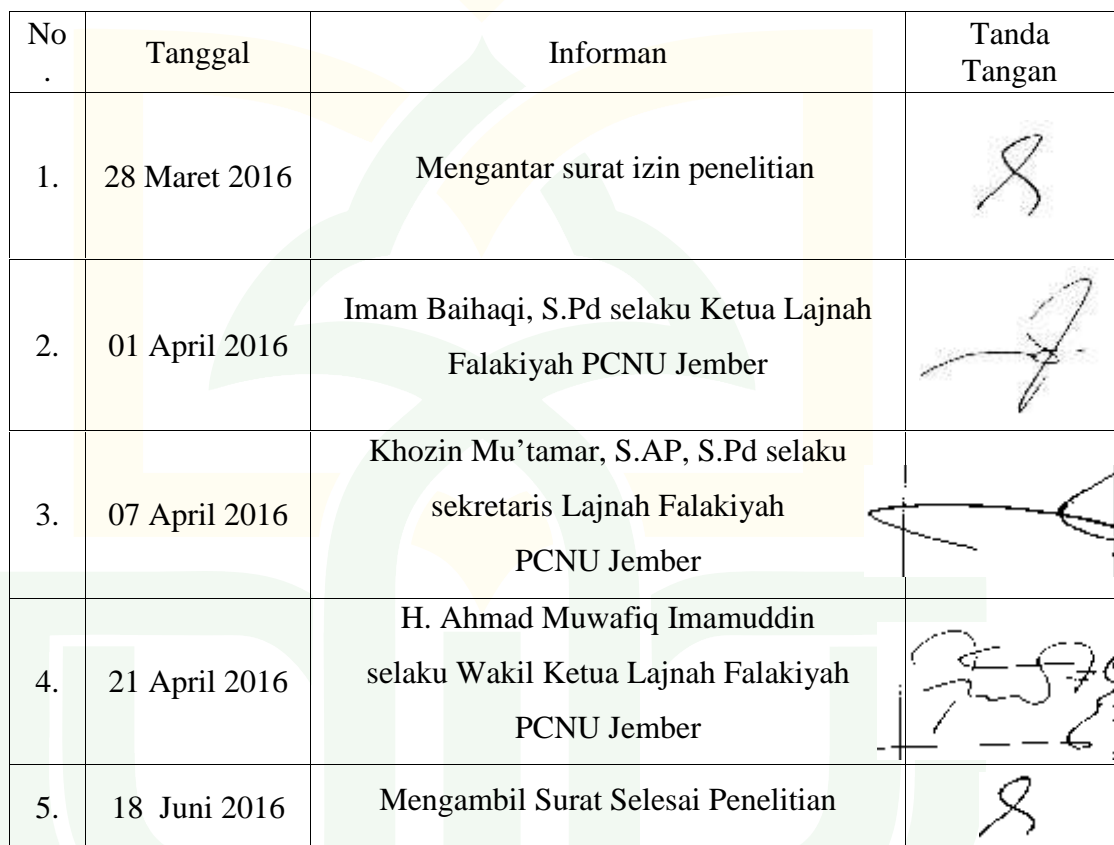 No
.
Tanggal
Informan
Tanda
Tangan
1.
28 Maret 2016
Mengantar surat izin penelitian
2.
01 April 2016
Imam Baihaqi, S.Pd selaku Ketua Lajnah
Falakiyah PCNU Jember
3.
07 April 2016
Khozin Mu’tamar, S.AP, S.Pd selaku
sekretaris Lajnah Falakiyah
PCNU Jember
4.
21 April 2016
H. Ahmad Muwafiq Imamuddin
selaku Wakil Ketua Lajnah Falakiyah
PCNU Jember
5.
18 Juni 2016
Mengambil Surat Selesai Penelitian